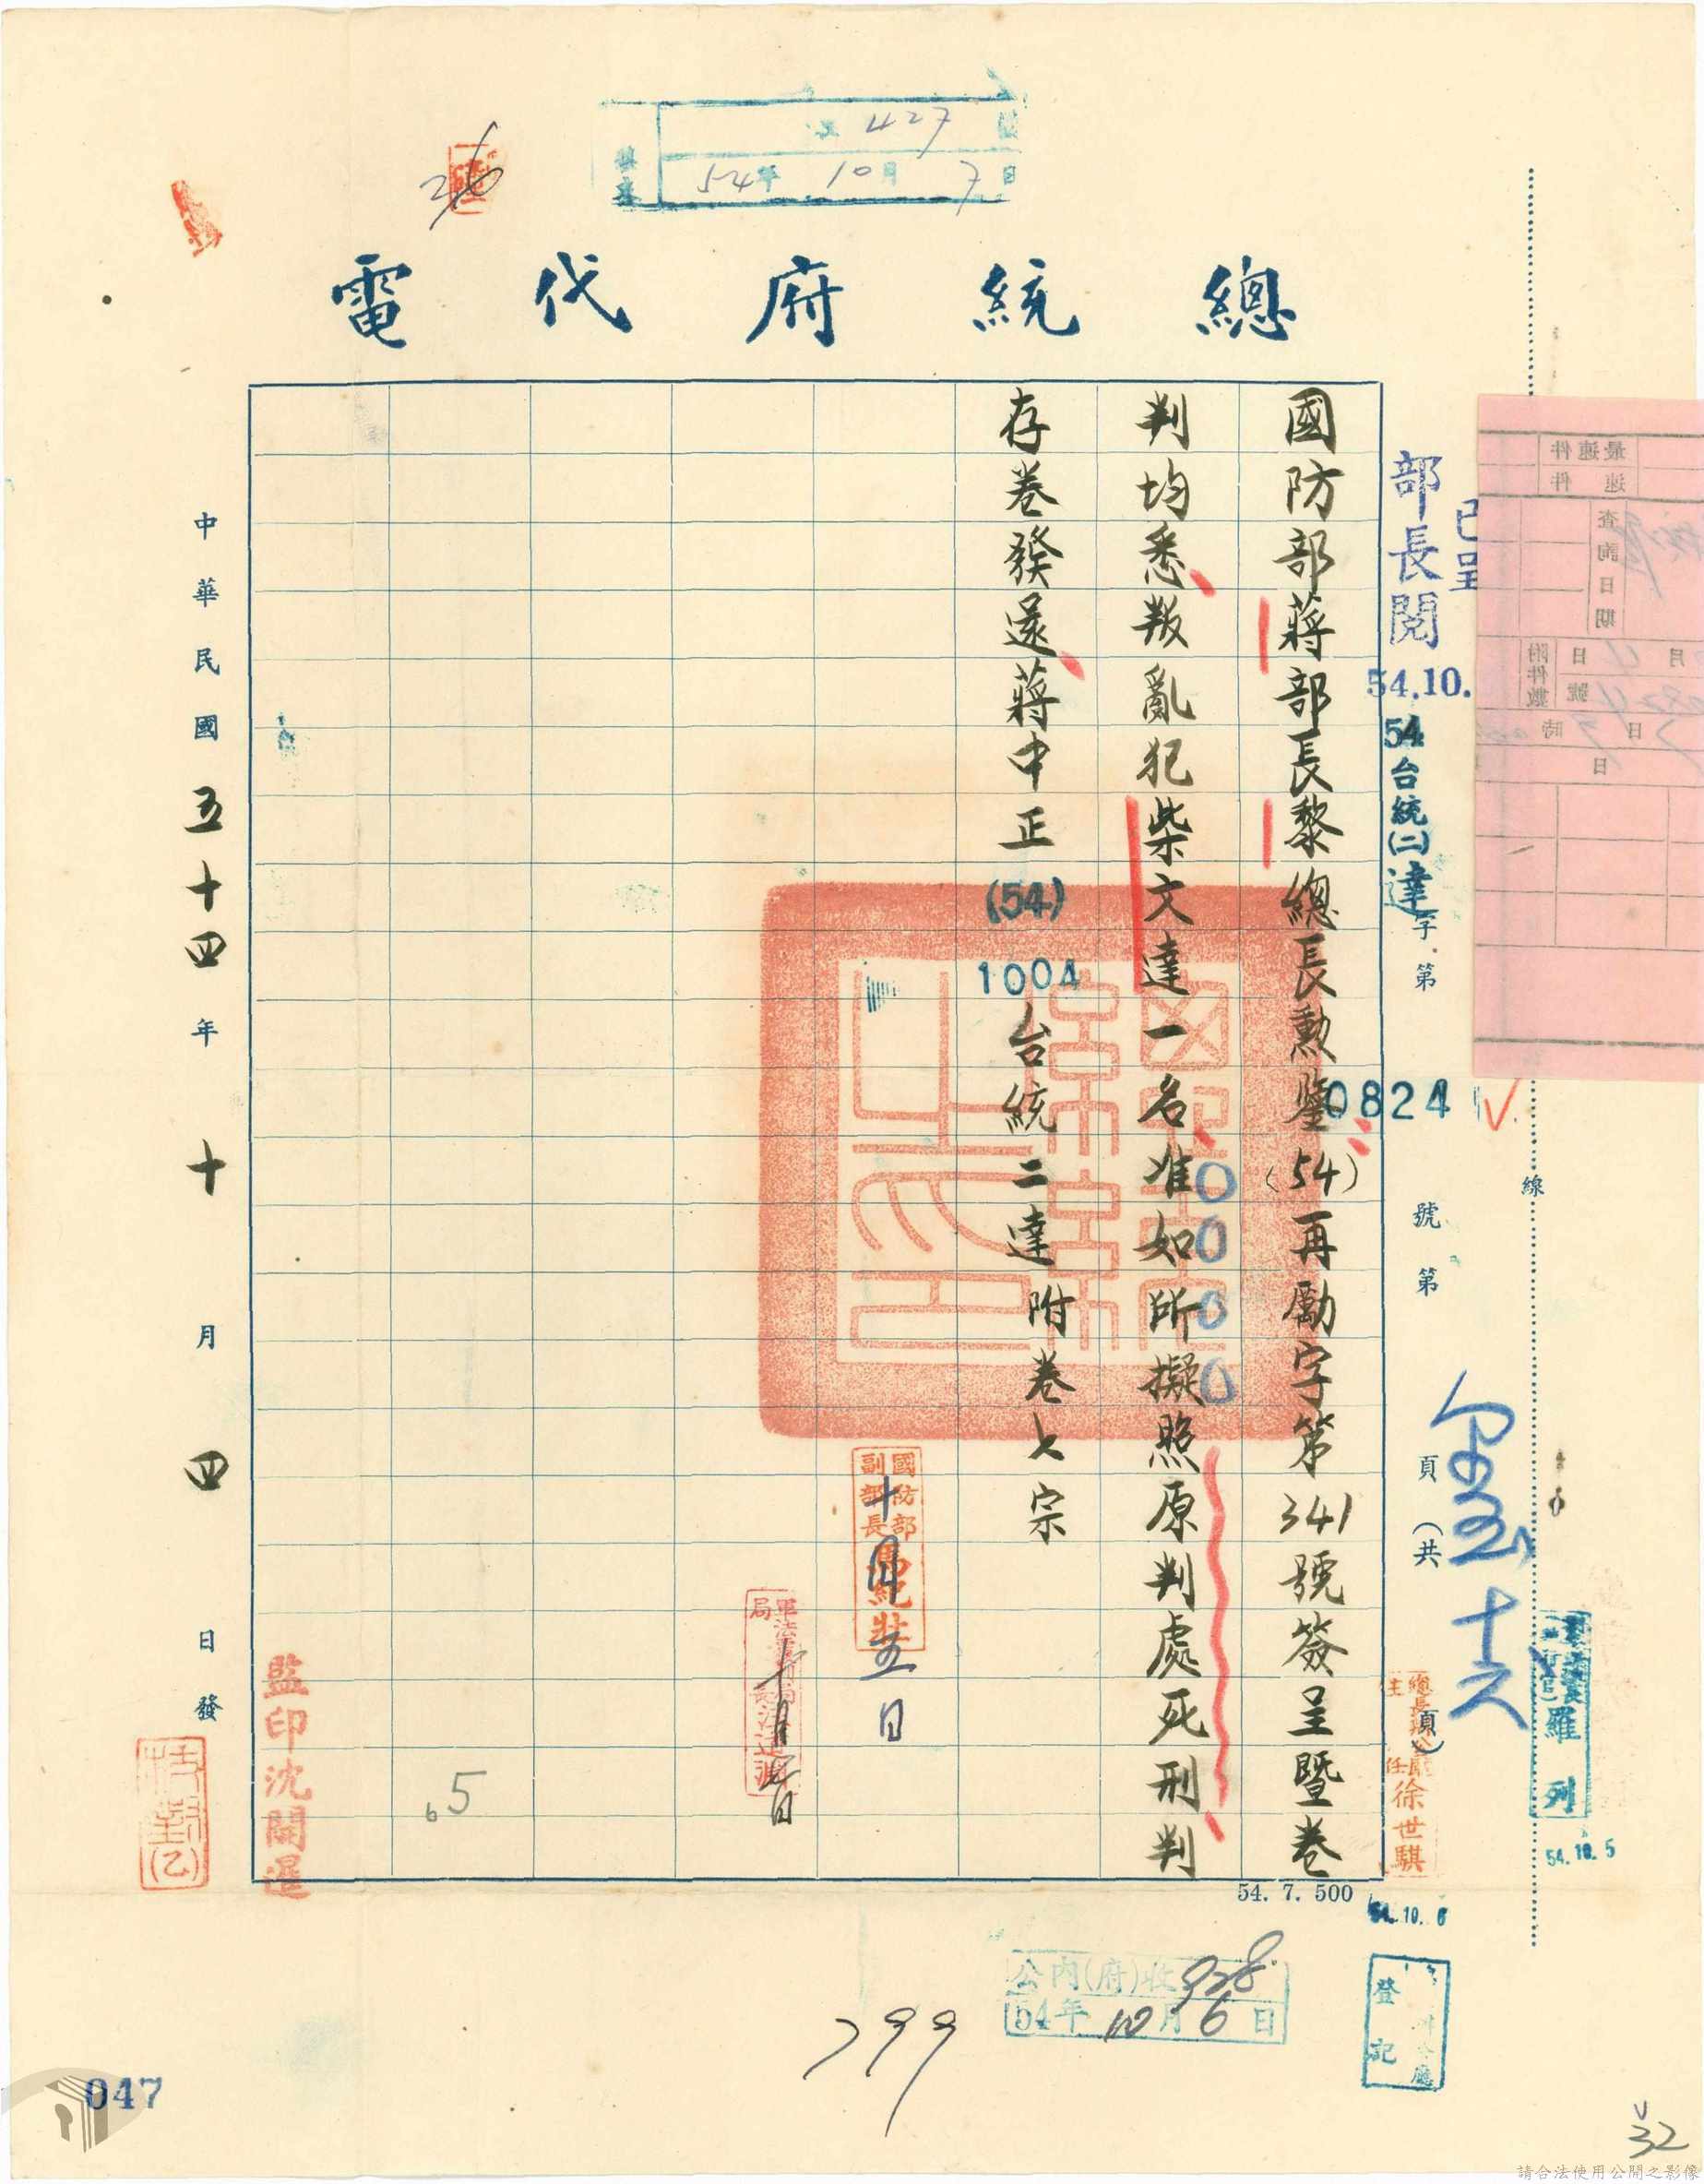 427
54年10月7日
26
總統府代電
最速件
速件
查詢日期
附件數
已呈
部長閱
54.10.
54台統(二)達字第
0824
號第
頁(共
頁)
線
國防部蔣部長黎總長勲鑒(54)再勵字第341號簽呈暨卷
判均悉叛亂犯柴文達一名准如所擬照原判處死刑判
存卷發還蔣中正(54)
1004
台統二達附卷七宗
國防部副部長馬紀壯
十月五日
十月七日
總長辦公廳主任徐世騏
54.10.6
羅列
54.10.5
中華民國五十四年十月四日發
監印沈開暹
65
54. 7. 500
公內(府)收928
54年10月6日
登記
799
047
32
請合法使用公開之影像